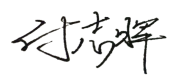 付志辉